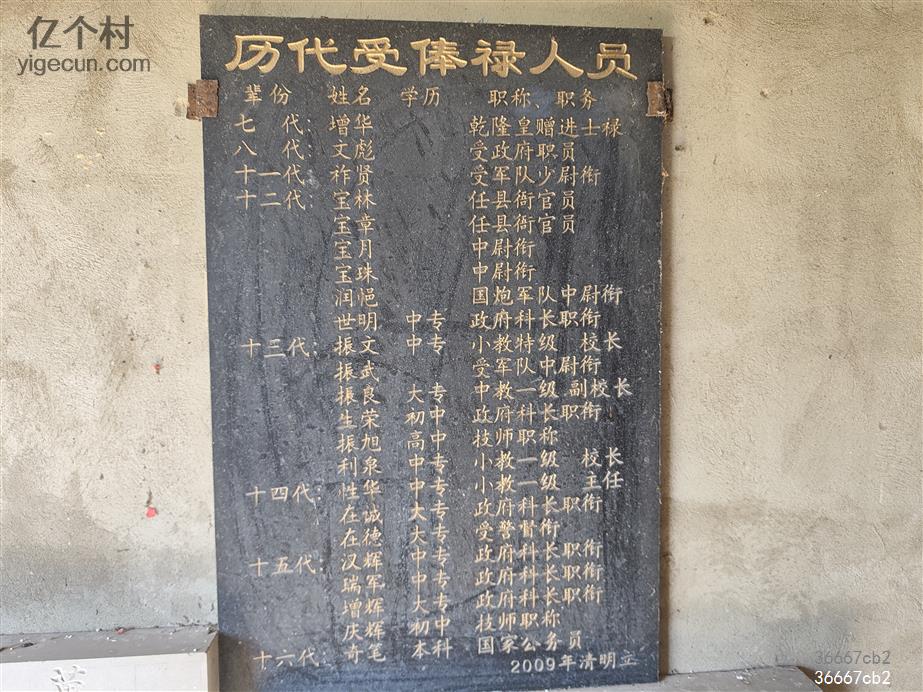 亿个村
yigecun.com
历代受俸禄人员
辈份 姓名 学历 职称、职务
七代: 增华 乾隆皇赠进士禄
八代: 文彪 受政府职员
十一代: 祚贤 受军队少尉衔
十二代: 宝林 任县衙官员
宝章 任县衙官员
宝月 中尉衔
宝珠 中尉衔
润悒 国炮军队中尉衔
世明 中专 政府科长职衔
十三代: 振文 中专 小教特级 校长
振武 受军队中尉衔
振良 大专 中教一级副校长
生荣 初中 政府科长职衔
振旭 高中 技师职称
利泉 中专 小教一级 校长
十四代: 性华 中专 小教一级 主任
在诚 大专 政府科长职衔
在德 大专 受警督衔
十五代: 汉辉 中专 政府科长职衔
瑞军 中专 政府科长职衔
增辉 大专 政府科长职衔
庆辉 初中 技师职称
十六代: 奇笔 本科 国家公务员
2009年清明立
36667cb2
36667cb2